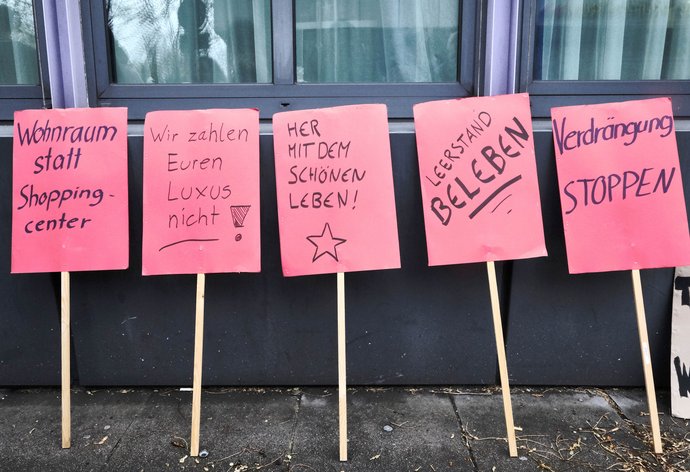 Wohnraum
statt
Shopping-
center
Wir zahlen
Euren
Luxus
nicht!
HER
MIT DEM
SCHÖNEN
LEBEN!
LEERSTAND
BELEBEN
Verdrängung
STOPPEN